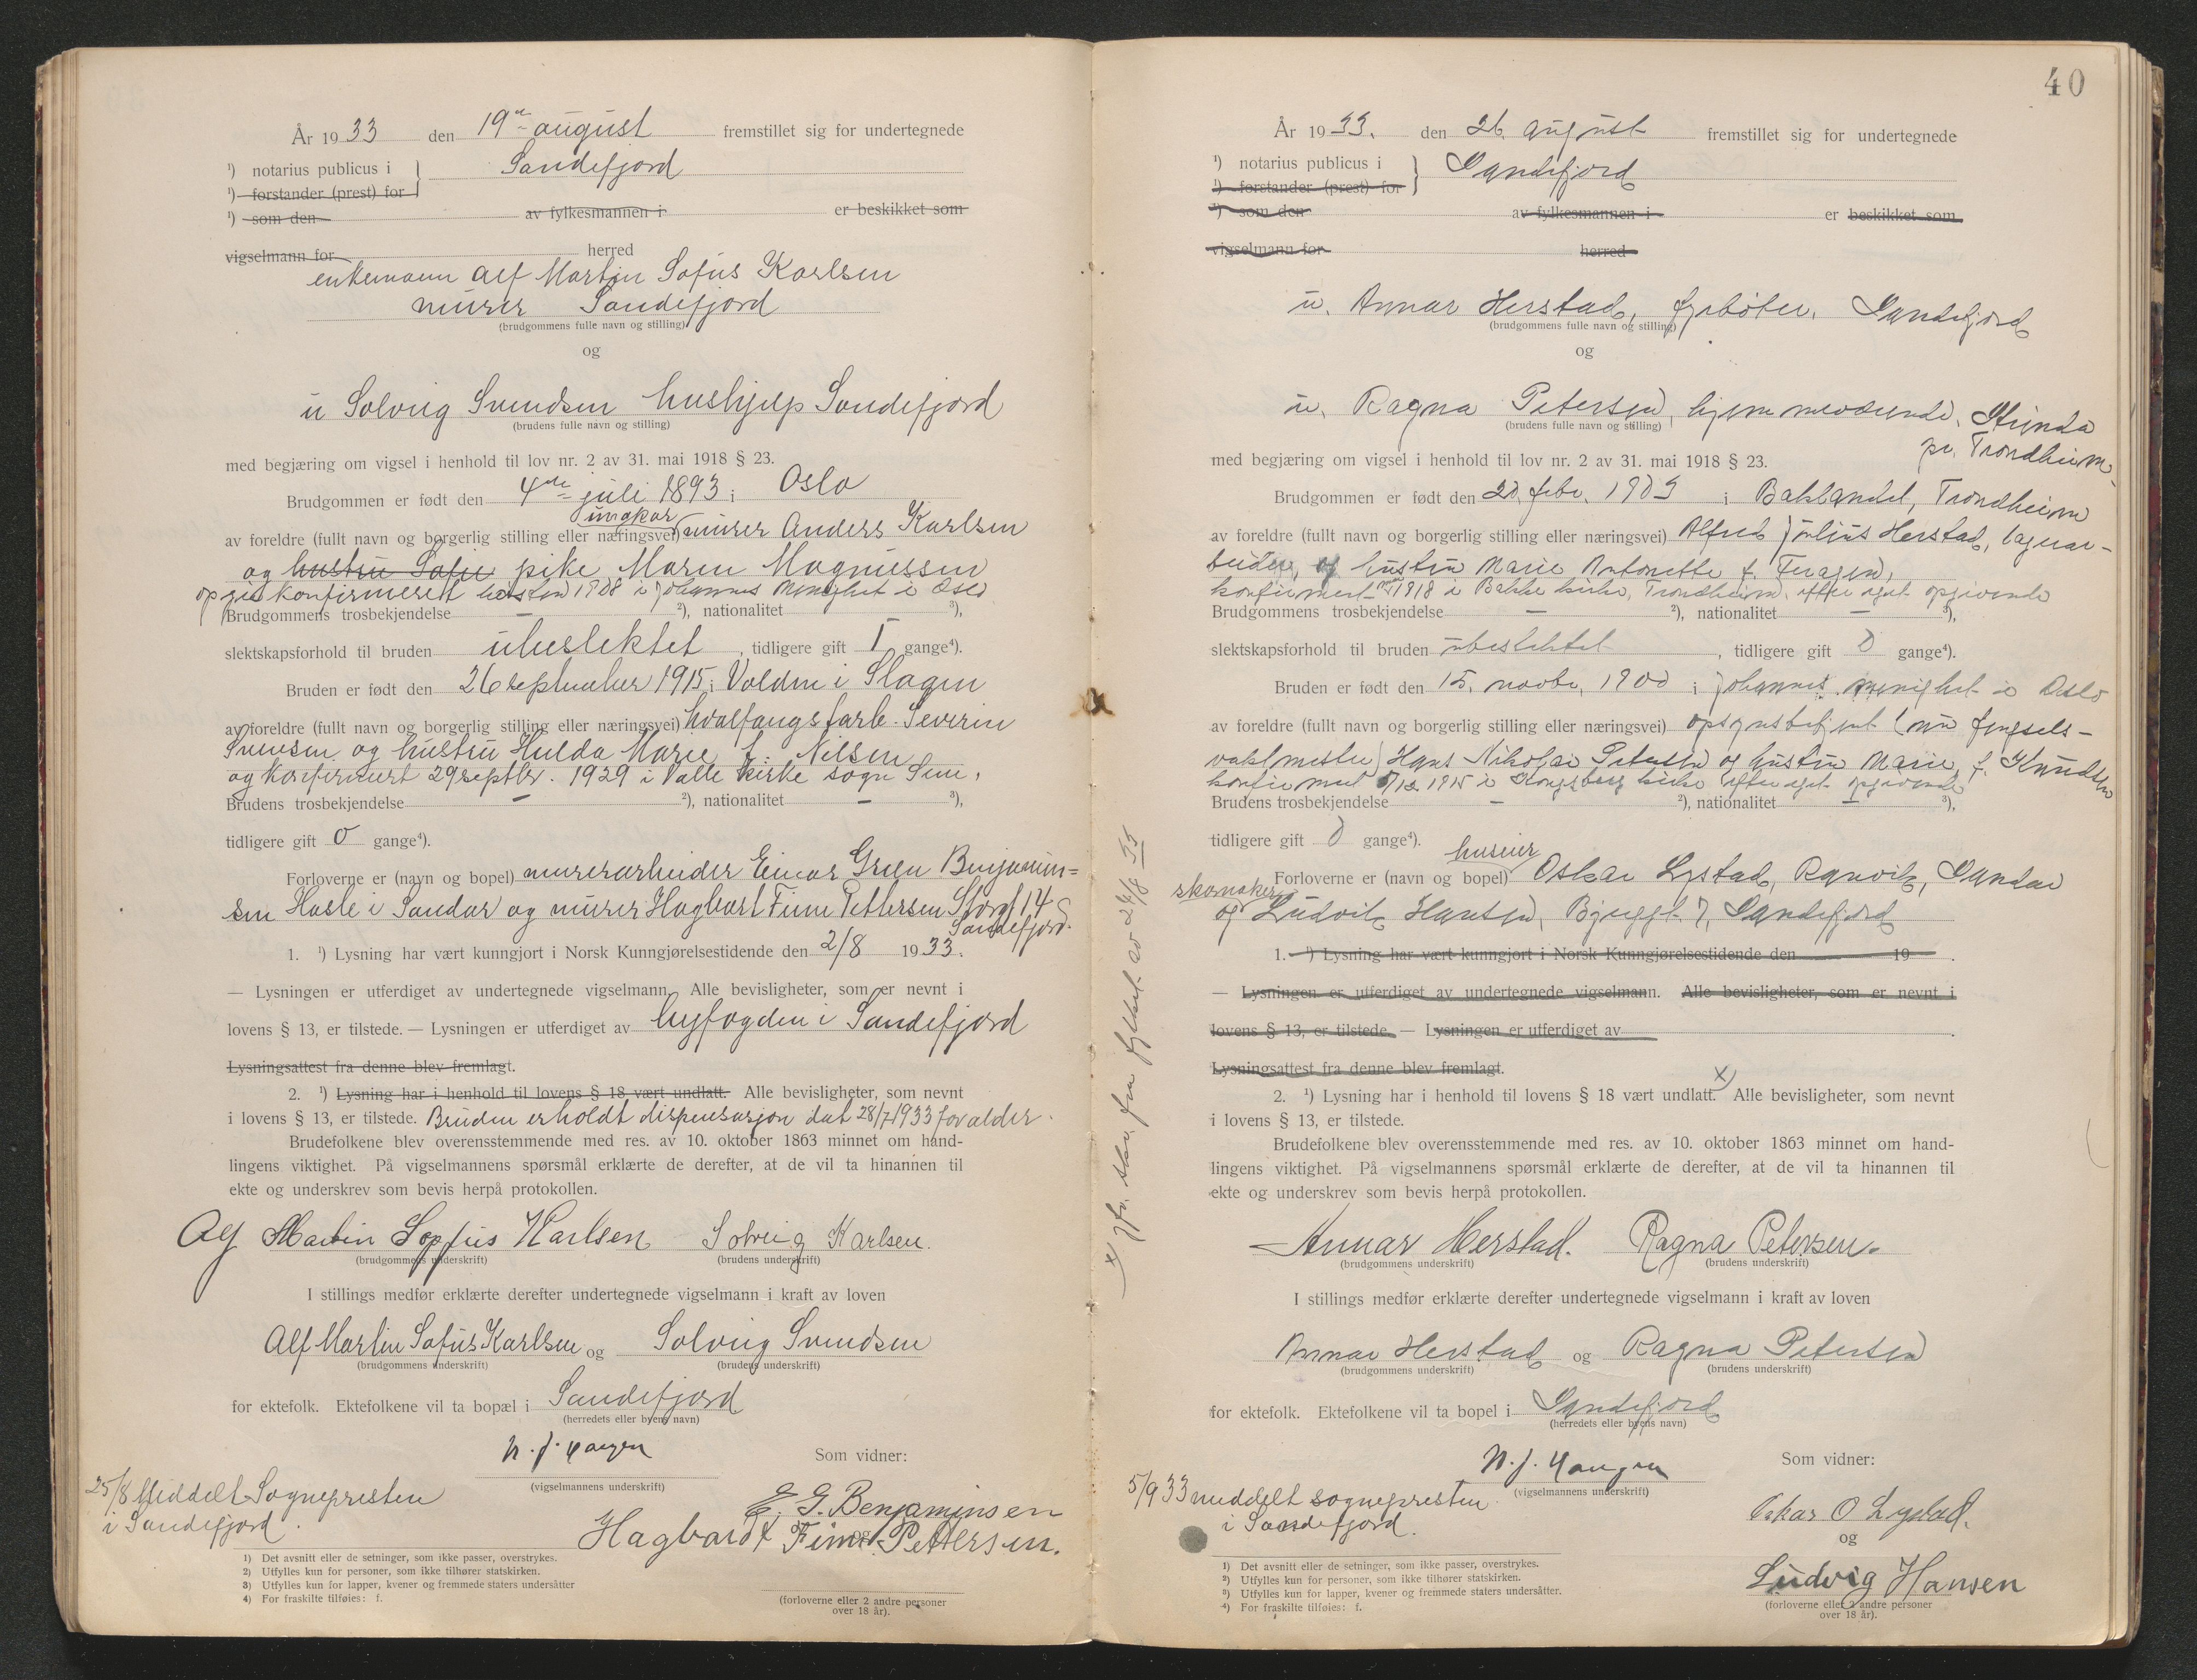 År 1933 den 19de august fremstillet sig for undertegnede
¹) notarius publicus i } Sandefjord
¹) forstander (prest) for
¹) som den av fylkesmannen i er beskikket som
vigselmann for herred
enkemann Alf Martin Sofus Karlsen
murer Sandefjord
(brudgommens fulle navn og stilling)
og
u Solveig Svendsen hushjelp Sandefjord
(brudens fulle navn og stilling)
med begjæring om vigsel i henhold til lov nr. 2 av 31. mai 1918 § 23.
Brudgommen er født den 4de juli 1893 i Oslo
ungkar
av foreldre (fullt navn og borgerlig stilling eller næringsvei) murer Anders Karlsen
og hustru Sofie pike Maren Magnussen
opgis konfirmeret høsten 1908 i Johannes Menighet i Oslo
Brudgommens trosbekjendelse – ²), nationalitet – ³),
slektskapsforhold til bruden ubeslektet, tidligere gift 1 gange⁴).
Bruden er født den 26 september 1915 i Valdm i Slagen
av foreldre (fullt navn og borgerlig stilling eller næringsvei) hvalfangstarb. Severin
Svensen og hustru Hulda Marie f. Nilsen
og konfirmert 29 septbr. 1929 i Valle kirke sogn Sem.
Brudens trosbekjendelse – ²), nationalitet – ³),
tidligere gift 0 gange⁴).
Forloverne er (navn og bopel) murerarbeider Einar Green Benjamin=
sen Hasle i Sandar og murer Hagbart Finn Pettersen Storgt 14 c
Sandefjord.
1. ¹) Lysning har vært kunngjort i Norsk Kunngjørelsestidende den 2/8 1933.
— Lysningen er utferdiget av undertegnede vigselmann. Alle bevisligheter, som er nevnt i
lovens § 13, er tilstede. — Lysningen er utferdiget av byfogden i Sandefjord
Lysningsattest fra denne blev fremlagt.
2. ¹) Lysning har i henhold til lovens § 18 vært undlatt. Alle bevisligheter, som nevnt
i lovens § 13, er tilstede. Bruden erholdt dispensasjon dat 28/7 1933 for alder.
Brudefolkene blev overensstemmende med res. av 10. oktober 1863 minnet om hand-
lingens viktighet. På vigselmannens spørsmål erklærte de derefter, at de vil ta hinannen til
ekte og underskrev som bevis herpå protokollen.
Alf Martin Sopfus Karlsen Solveig Karlsen.
(brudgommens underskrift) (brudens underskrift)
I stillings medfør erklærte derefter undertegnede vigselmann i kraft av loven
Alf Martin Sofus Karlsen og Solveig Svendsen
(brudgommens underskrift) (brudens underskrift)
for ektefolk. Ektefolkene vil ta bopæl i Sandefjord
(herredets eller byens navn)
Som vidner:
(vigselmannens underskrift)
25/8 Meddelt Sognepresten
i Sandefjord.
E. G. Benjaminsen
og
Hagbardt Finn Pettersen.
(forloverne eller 2 andre personer
over 18 år).
1) Det avsnitt eller de setninger, som ikke passer, overstrykes.
2) Utfylles kun for personer, som ikke tilhører statskirken.
3) Utfylles kun for lapper, kvener og fremmede staters undersåtter
4) For fraskilte tilføies: f.
40
År 1933. den 26. august fremstillet sig for undertegnede
¹) notarius publicus i } Sandefjord
¹) forstander (prest) for
¹) som den av fylkesmannen i er beskikket som
vigselmann for herred
u. Annar Herstad, fyrbøter, Sandefjord
(brudgommens fulle navn og stilling)
og
u. Ragna Petersen, hjemmeværende, Strinda
pr. Trondheim
(brudens fulle navn og stilling)
med begjæring om vigsel i henhold til lov nr. 2 av 31. mai 1918 § 23.
Brudgommen er født den 20. febr. 1903 i Baklandet, Trondheim
av foreldre (fullt navn og borgerlig stilling eller næringsvei) Alfred Julius Herstad, lagerar-
beider, og hustru Marie Antonette f. Feragen,
konfirmert 1918 i Bakke kirke, Trondheim, efter eget opgivende
Brudgommens trosbekjendelse – ²), nationalitet – ³),
slektskapsforhold til bruden ubeslektet, tidligere gift 0 gange⁴).
Bruden er født den 15. novbr. 1900 i Johannes menighet i Oslo
av foreldre (fullt navn og borgerlig stilling eller næringsvei) opsynsbetjent (nu fengsels-
vaktmester) Hans Nikolai Petersen og hustru Marie f. Knudsen
konfirmert 5/12 1915 i Kongsberg kirke efter eget opgivende
Brudens trosbekjendelse – ²), nationalitet – ³),
tidligere gift 0 gange⁴).
huseier
Forloverne er (navn og bopel) Oskar Lystad, Ranvik, Sandar
skomaker
og Ludvik Hansen, Bjerggt. 7, Sandefjord
1. ¹) Lysning har vært kunngjort i Norsk Kunngjørelsestidende den 19 .
— Lysningen er utferdiget av undertegnede vigselmann. Alle bevisligheter, som er nevnt i
lovens § 13, er tilstede. — Lysningen er utferdiget av
Lysningsattest fra denne blev fremlagt.
2. ¹) Lysning har i henhold til lovens § 18 vært undlatt. x) Alle bevisligheter, som nevnt
i lovens § 13, er tilstede.
Brudefolkene blev overensstemmende med res. av 10. oktober 1863 minnet om hand-
lingens viktighet. På vigselmannens spørsmål erklærte de derefter, at de vil ta hinannen til
ekte og underskrev som bevis herpå protokollen.
Annar Herstad. Ragna Petersen.
(brudgommens underskrift) (brudens underskrift)
I stillings medfør erklærte derefter undertegnede vigselmann i kraft av loven
Annar Herstad og Ragna Petersen
(brudgommens underskrift) (brudens underskrift)
for ektefolk. Ektefolkene vil ta bopel i Sandefjord
(herredets eller byens navn)
Som vidner:
(vigselmannens underskrift)
5/9 33 meddelt sognepresten
i Sandefjord.
Oskar O Lystad.
og
Ludvig Hansen
(forloverne eller 2 andre personer
over 18 år).
1) Det avsnitt eller de setninger, som ikke passer, overstrykes.
2) Utfylles kun for personer, som ikke tilhører statskirken.
3) Utfylles kun for lapper, kvener og fremmede staters undersåtter.
4) For fraskilte tilføies: f.